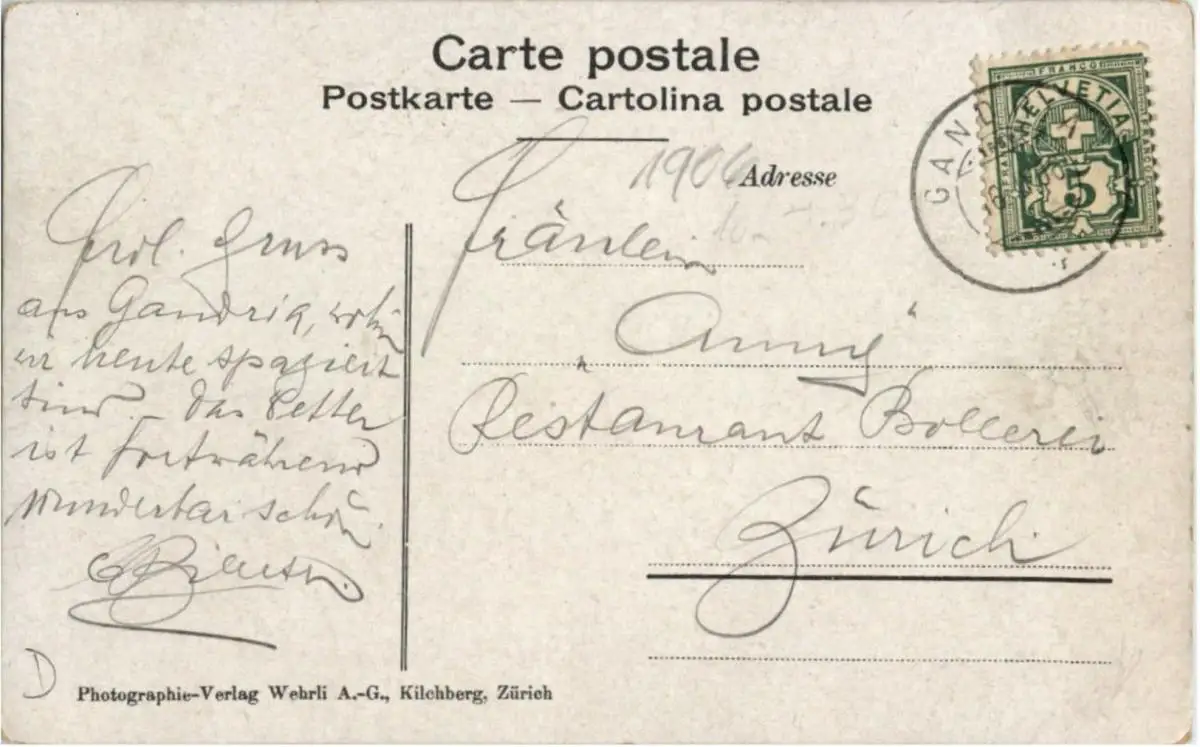 Carte postale
Postkarte — Cartolina postale
1906
Adresse
FRANCO
HELVETIA
5
GANDRIA
Fräulein
„Anny“
Restaurant Bollerei
Zürich
Frdl. Gruss
aus Gandria, wohin
wir heute spaziert
sind. – Das Wetter
ist fortwährend
wunderbar schön.
D
Photographie-Verlag Wehrli A.-G., Kilchberg, Zürich